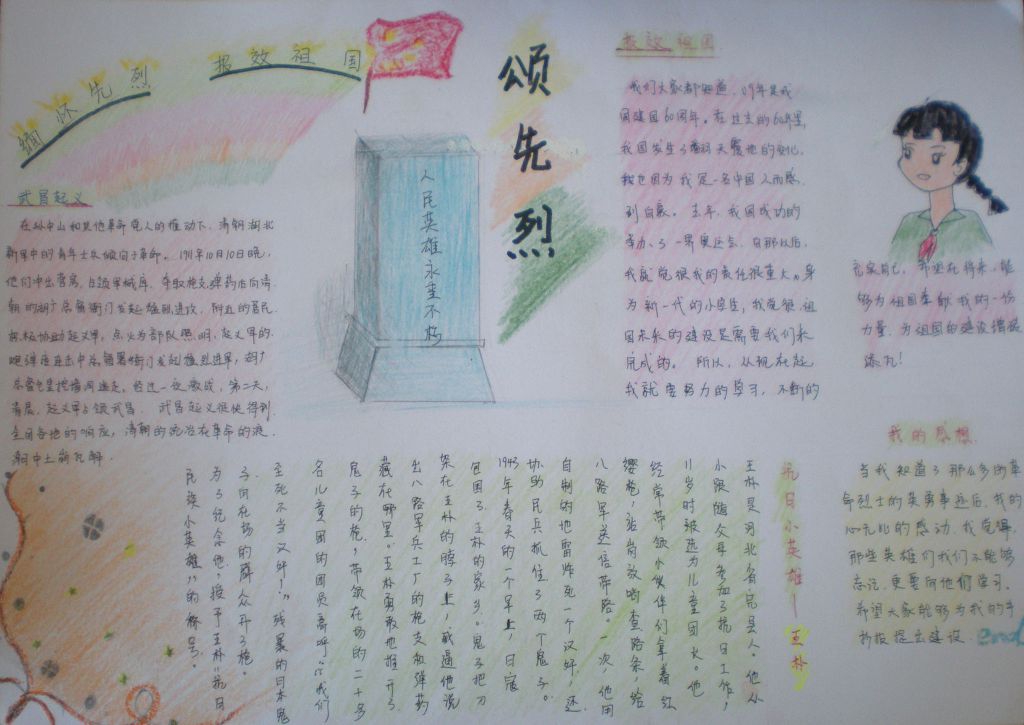 缅怀先烈 报效祖国
颂先烈
人民英雄永垂不朽
武昌起义
在孙中山和其他革命党人的推动下,清朝湖北
新军中的青年士兵倾向于革命。1911年10月10日晚,
他们冲出营房,占领军械库,夺取枪支弹药后向清
朝的湖广总督衙门发起猛烈进攻,附近的居民
积极协助起义军,点火为部队照明,起义军的
炮弹直击中总督署衙门发起猛烈进军,湖广
总督
逃走,经过一夜激战,第二天,
清晨,起义军占领武昌。武昌起义很快得到
全国各地的响应,清朝的统治在革命的浪
潮中土崩瓦解。
报效祖国
我们大家都知道,09年是我
国建国60周年。在过去的60年里,
我国发生了翻天覆地的变化,
我也因为我是一名中国人而感
到自豪。去年,我国成功的
举办了一界奥运会,自那以后,
我就觉得我的责任很重大。身
为新一代的小学生,我觉得祖
国未来的建设是需要我们来
完成的。所以,从现在起
我就要努力的学习,不断的
充实自己,希望在将来,能
够为祖国奉献我的一份
力量,为祖国的建设增砖
添瓦!
抗日小英雄—王朴
王朴是河北省完县人,他从
小跟随父母参加了抗日工作,
11岁时被选为儿童团长。他
经常带领小伙伴们拿着红
缨枪,站岗放哨查路条,给
八路军送信带路。一次,他用
自制的地雷炸死一个汉奸,还
协助民兵抓住了两个鬼子。
1943年春天的一个早上,日寇
包围了王朴的家乡。鬼子把刀
架在王朴的脖子上,威逼他说
出八路军兵工厂的枪支和弹药
藏在哪里。王朴勇敢地推开了
鬼子的枪,带领在场的二十多
名儿童团的团员高呼:“我们
至死不当汉奸!”残暴的日本鬼
子向在场的群众开了枪。
为了纪念他,授予王朴“抗日
民族小英雄”的称号。
我的感想
当我知道了那么多的革
命烈士的英勇事迹后,我的
心无比的感动,我觉得,
那些英雄们我们不能够
忘记,更要向他们学习。
希望大家能够为我的手
抄报提出建议。end